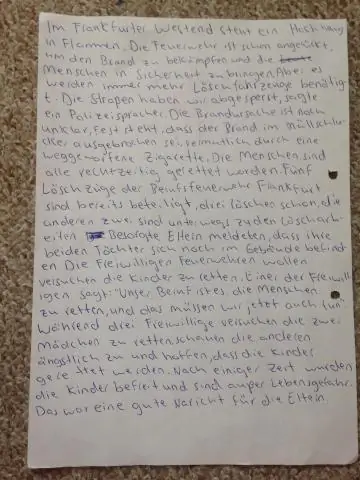 Im Frankfurter Westend steht ein Hochhaus
in Flammen. Die Feuerwehr ist schon angerückt,
um den Brand zu bekämpfen und die
Menschen in Sicherheit zu bringen. Aber es
werden immer mehr Löschfahrzeuge benötig-
t. Die Straßen haben wir abgesperrt, sagte
ein Polizeisprecher. Die Brandursache ist noch
unklar, Fest steht, dass der Brand im müllschlu-
cker ausgebrochen sei, vermutlich durch eine
weggeworfene Zigarette. Die Menschen sind
alle rechtzeitig gerettet worden. Fünf
Löschzüge der Berufsfeuerwehr Frankfurt
sind bereits beteiligt, drei löschen schon, die
anderen zwei sind unterwegs zu den Löscharb-
eiten Besorgte Eltern meldeten, dass ihre
beiden Töchter sich noch im Gebäude befind
en Die Freiwilligen Feuerwehren wollen
versuchen die Kinder zu retten. Einer der Freiwill
igen sagt: "Unser Beruf ist es die Menschen
zu retten, und das müssen wir jetzt auch tun"
Während drei Freiwillige versuchen die zwei
mädchen zu retten, schauen die anderen
ängstlich zu und hoffen, dass die Kinder
gerettet werden. Nach einiger Zeit wurden
die Kinder befreit und sind außer Lebensgefahr.
Das war eine gute Naricht für die Eltern.